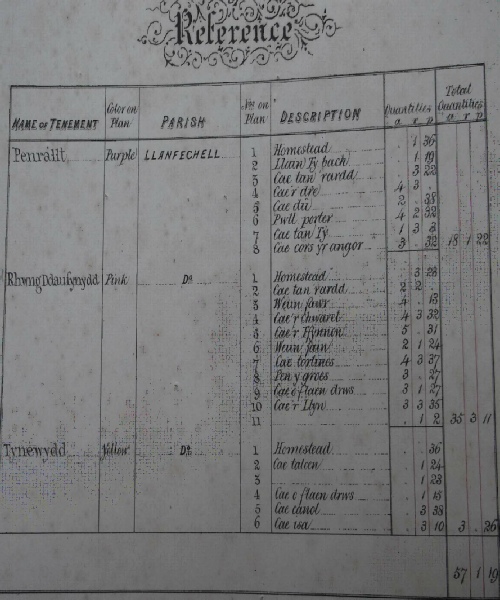 Reference
NAME OF TENEMENT Color on Plan PARISH Nos on Plan DESCRIPTION Quantities a r p Total Quantities a r p
Penrallt Purple LLANFECHELL 1 Homestead . 1 36
2 Llain Ty bach . 1 19
3 Cae tan rardd . 3 22
4 Cae'r dre 4 3 .
5 Cae du 2 . 38
6 Pwll porter 4 2 32
7 Cae tan Ty 1 3 3
8 Cae cors yr angor 3 . 32 18 1 22
Rhwng Ddaufynydd Pink Do 1 Homestead . 3 28
2 Cae tan rardd 2 2 .
3 Weun fawr 4 . 13
4 Cae'r chwarel 4 3 32
5 Cae'r Ffynnon 5 . 31
6 Weun fain 2 1 24
7 Cae 4 3 37
8 Pen y groes 3 . 27
9 Cae o flaen drws 3 1 27
10 Cae'r Llyn 3 3 35
11 . 1 2 35 3 11
Tynewydd Yellow Do 1 Homestead . . 36
2 Cae talcen . 1 24
3 . 1 23
4 Cae o flaen drws . 1 15
5 Cae canol . 3 38
6 Cae isa . 3 10 3 . 26
57 1 19